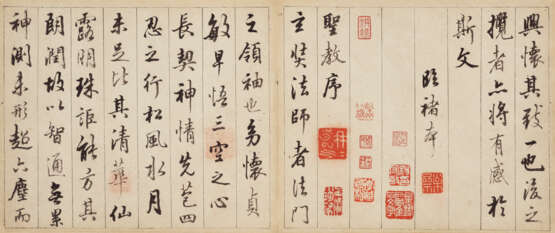 興懷其致一也後之
攬者亦將有感於
斯文
臨褚本
聖教序
玄奘法師者法門
之領袖也幼懷貞
敏早悟三空之心
長契神情先苞四
忍之行松風水月
未足比其清華仙
露明珠詎能方其
朗潤故以智通無累
神測未形超六塵而